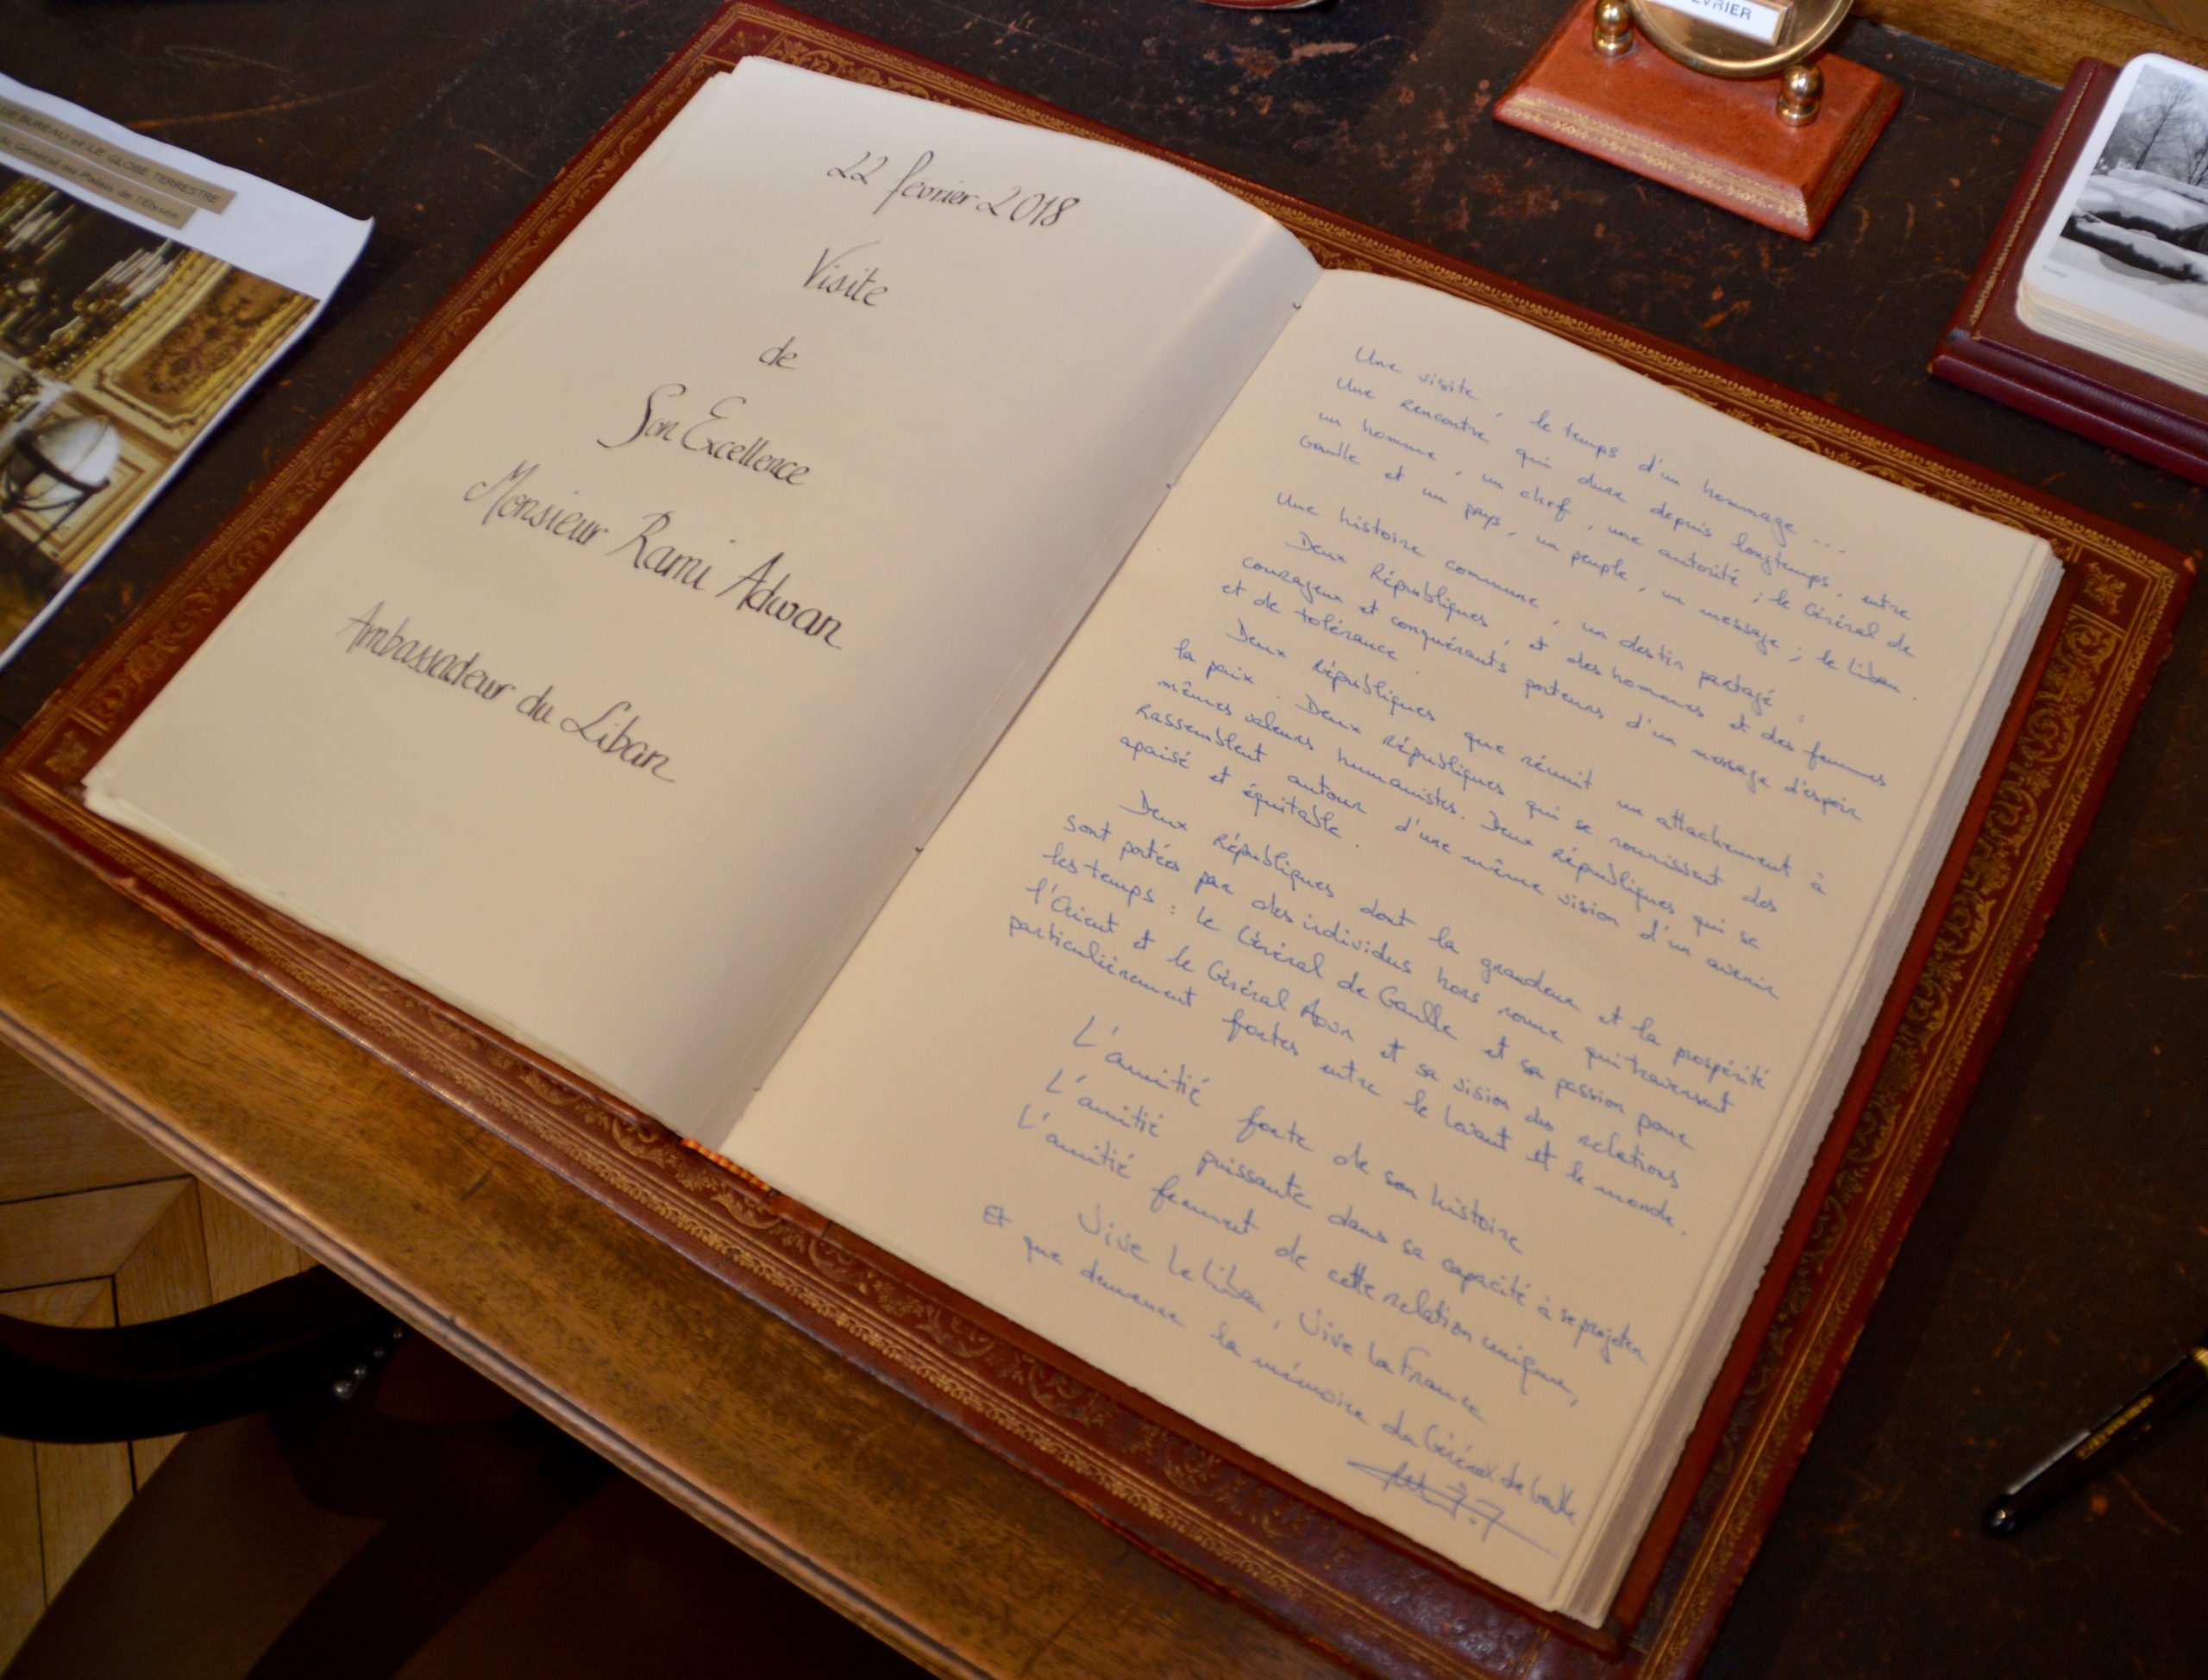 DE BUREAU et LE GLOBE TERRESTRE
du Général au Palais de l'Elysée
22 février 2018
Visite
de
Son Excellence
Monsieur Rami Adwan
Ambassadeur du Liban
Une visite, le temps d'un hommage ...
Une rencontre qui dure depuis longtemps, entre
un homme, un chef, une autorité ; le Général de
Gaulle et un pays, un peuple, un message ; le Liban.
Une histoire commune, un destin partagé :
Deux Républiques, et des hommes et des femmes
courageux et conquérants porteurs d'un message d'espoir
et de tolérance.
Deux Républiques que réunit un attachement à
la paix. Deux républiques qui se nourrissent des
mêmes valeurs humanistes. Deux Républiques qui se
rassemblent autour d'une même vision d'un avenir
apaisé et équitable.
Deux Républiques dont la grandeur et la prospérité
sont portées par des individus hors norme qui traversent
les temps : le Général de Gaulle et sa passion pour
l'Orient et le Général Aoun et sa vision des relations
particulièrement fortes entre le Levant et le monde.
L'amitié forte de son histoire
L'amitié puissante dans sa capacité à se projeter
L'amitié ferment de cette relation unique,
Vive le Liban, Vive la France
Et que demeure la mémoire du Général de Gaulle